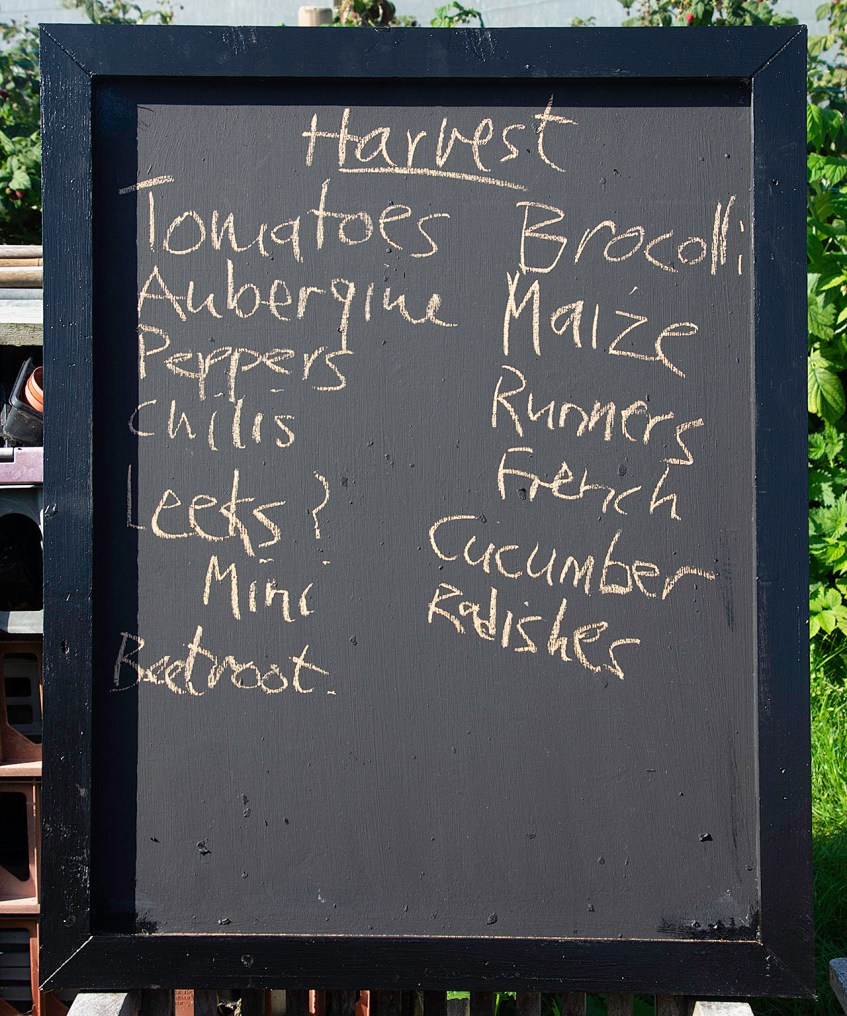 Harvest
Tomatoes
Aubergine
Peppers
Chilis
Leeks?
Mini
Beetroot.
Brocolli
Maize
Runners
French
Cucumber
Radishes